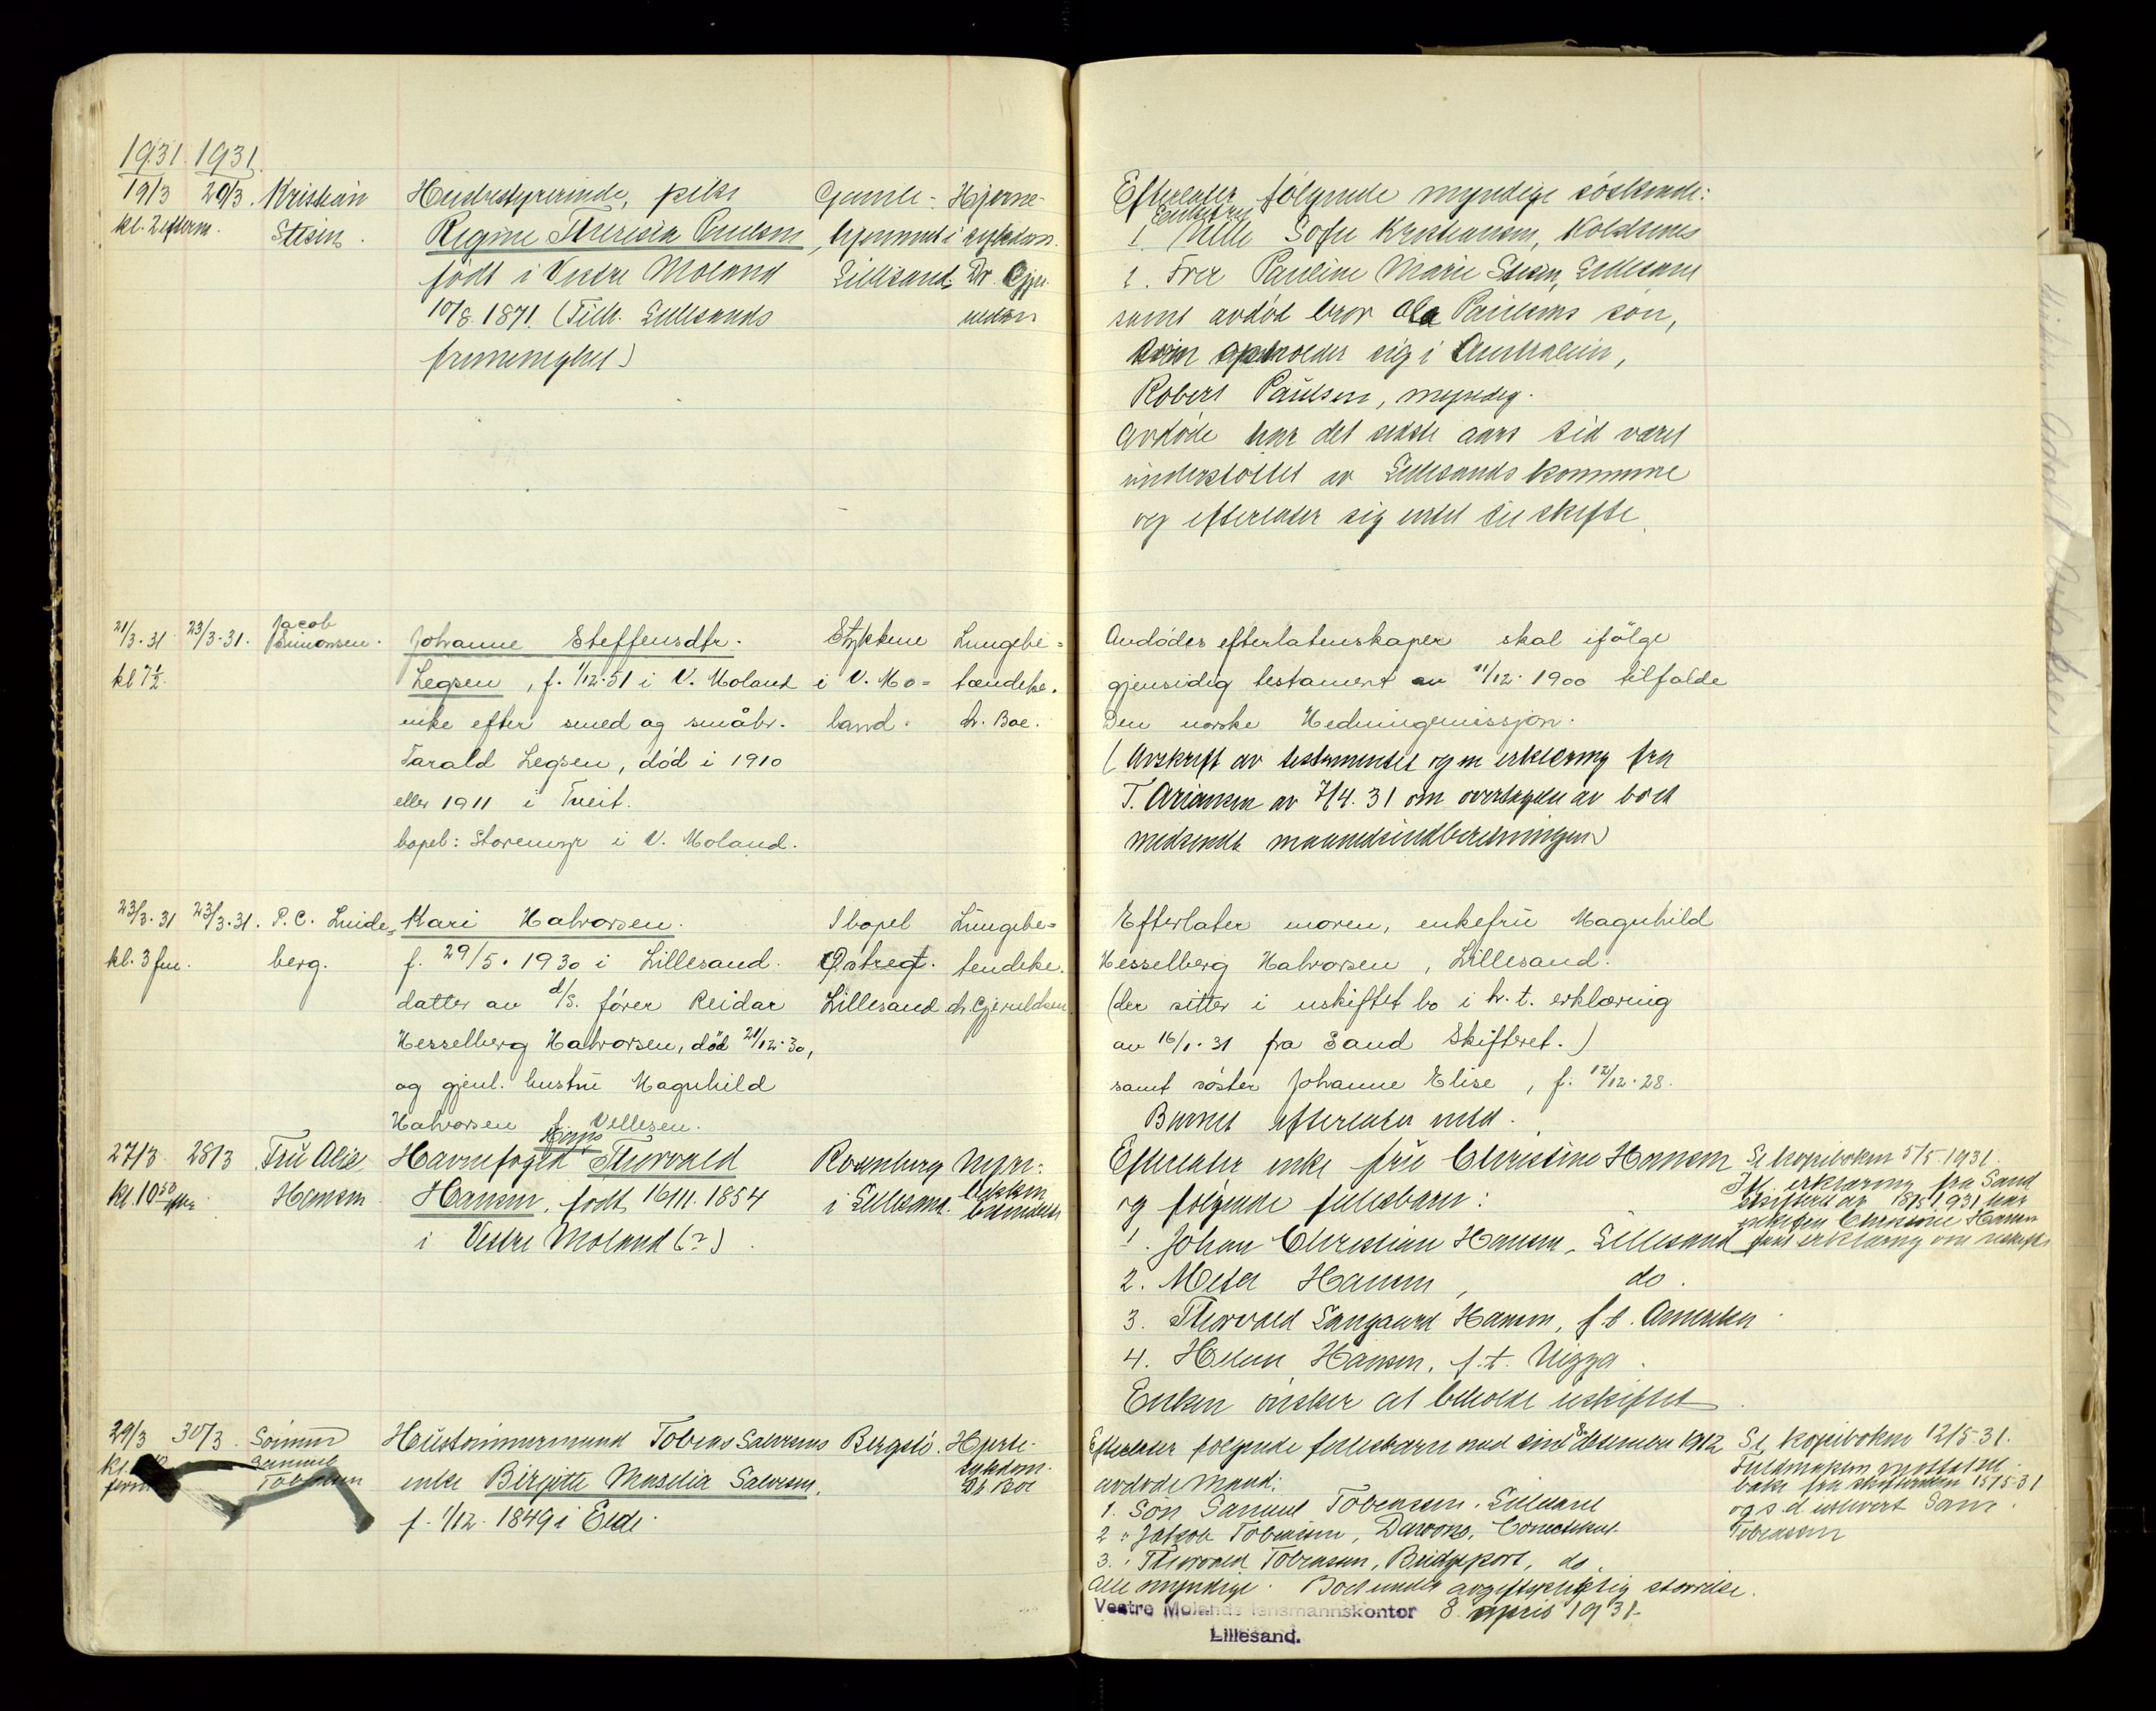 1931 1931
19/3 20/3. Kristian Husbestyrerinde, pike Gamle- Hjerne-
kl. 2 efterm. Stesin. Regine Theresia Paulsen, hjemmet i sykdom.
født i Vestre Moland Lillesand. Dr. Gjerueldsen
10/8. 1871. (Tilh. Lillesands
frimenighet)
Efterlater følgende myndige søskende:
Enkefru
1. Mille Sofie Kristiansen, Kolds
2. Frue Pauline Marie Stesin, Lillesand
samt avdød bror Ola Paulsens søn,
som opholder sig i Australien,
Robert Paulsen, myndig.
Avdøde har det sidste aars tid været
understøttet av Lillesands kommune
og efterlater sig intet til skifte.
21/3.31 23/3.31. Jacob Simonsen. Johanne Steffensdtr. Støkken Lungebe=
kl 7½. Legsen, f. 1/12.51 i V. Moland i V. Mo= tændelse.
enke efter smed og småbr. land. dr. Boe.
Tarald Legsen, død i 1910
eller 1911 i Tveit.
bopel: Storemyr i V. Moland.
Avdødes efterlatenskaper skal ifølge
gjensidig testament av 11/12. 1900 tilfalde
Den norske Hedningemissjon.
(Avskrift av testamentet og en erklæring fra
T. Ariansen av 7/4. 31 om overtagelse av boet
medsendt maanedsindberetningen)
23/3.31 23/3.31. P.C. Linde= Kari Halvorsen. I bopel Lungebe=
kl. 3 fm. berg. f. 29/5. 1930 i Lillesand. Østregt. tendelse.
datter av d/s. fører Reidar Lillesand dr. Gjerueldsen.
Hesselberg Halvorsen, død 21/12.30,
og gjenl. hustru Magnhild
Halvorsen f. Vellesen.
Efterlater moren, enkefru Magnhild
Hesselberg Halvorsen, Lillesand.
(der sitter i uskiftet bo i h.t. erklæring
av 16/1.31 fra Sand Skifteret.)
samt søster Johanne Elise, f. 12/12.28.
Barnet efterlater intet.
27/3 28/3 Fru Alie Havnefoged Thorvald Rosenberg Nyre-
kl. 10 50 efm. Hansen Hansen, født 16/11. 1854 i Lillesand. bækken
i Vestre Moland (?). betendelse
Efterlater enke fru Christine Hansen
og følgende fellesbarn:
1. Johan Christian Hansen, Lillesand
2. Meta Hansen, do.
3. Thorvald Sangaard Hansen, f.t. Amerika.
4. Helene Hansen, f.t. Nizza.
Enken ønsker at beholde uskiftet.
Se kopiboken 5/5. 1931.
Ifl. erklæring fra Sand
skifteret av 18/5 1931 har
enkefru Christine Hansen
faat erklæring om uskifte
29/3 30/3. Sønnen Hustømmermand Tobias Salvesens Bergstø. Hjerte-
kl. Samuel enke Birgitte Maselia Salvesen, sykdom.
form. Tobiassen f. 1/12. 1849 i Eide. Dr Boe
Efterlater følgende fellesbarn med sin 8 desember 1912
avdøde mand:
1. Søn Samuel Tobiassen, Lillesand
2. " Jakob Tobiassen, Connecticut.
3. " Thorvald Tobiassen, Bridgeport, do.
Alle myndige. Boet under avgiftspliktig størrelse.
Se kopiboken 12/5. 31.
tilbake fra skifteretten 15/5-31
og s.d. utlevert Sam.
Tobiassen
Vestre Molands lensmannskontor 8 april 1931.
Lillesand.